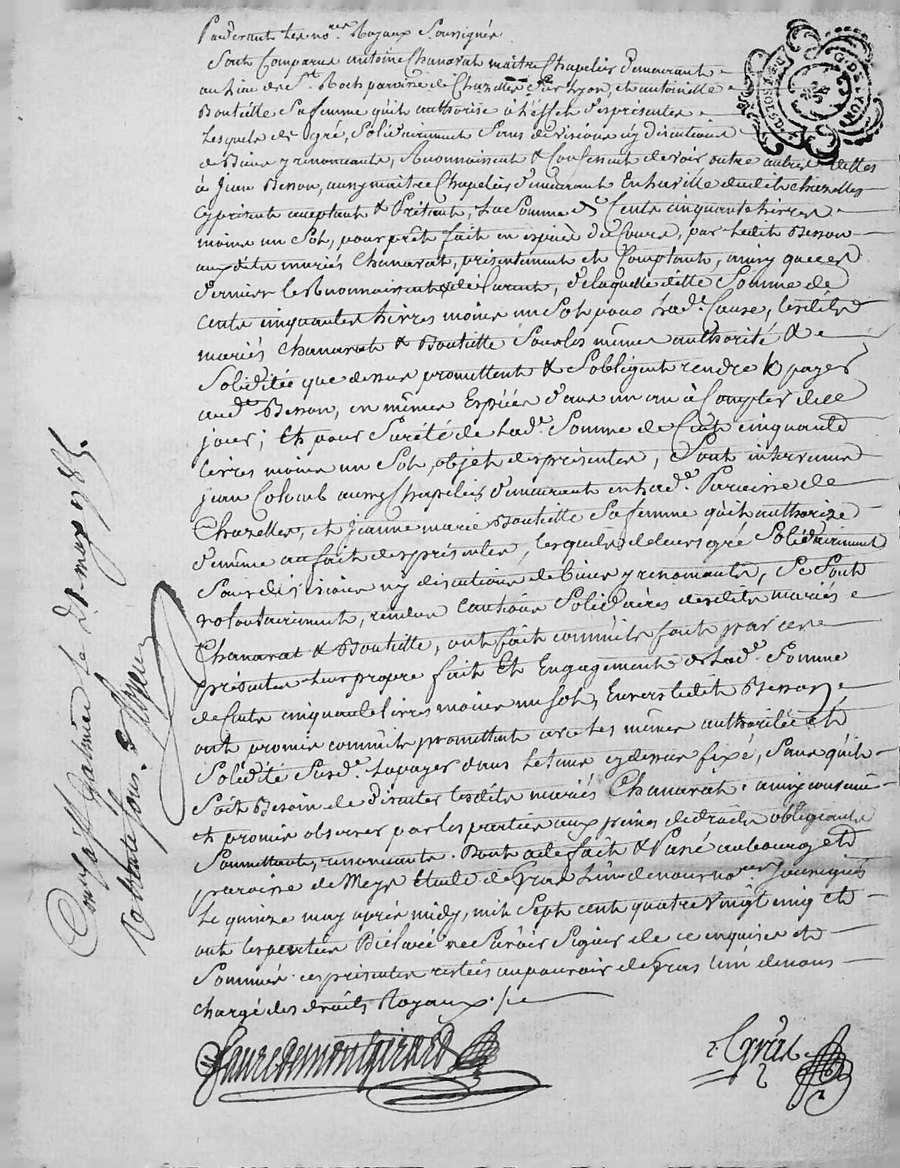 Pardevant les no.res Royaux Soussignés
Sont Comparus antoine Chanavat maitre Chapelier demeurant
au lieu de St Roch paroisse de Chazelles Sur Lyon, et antoinette
Bouteille Sa femme qu'il authorise à l'effet des présentes
Lesquels de gré, Solidairement Sans division ny discution
de Biens y renonceants, Reconnoissent & Confessent devoir outre autres dettes
à Jean Besson, aussy maitre Chapelier demeurant En la ville dudit Chazelles
Cy présent acceptant & Prétant, La Somme de Cents cinquante Livres
moins un Sol, pour prêt fait en espèce de Cours, par Ledit Besson
auxdits mariés Chanavat, présentement et Comptant, ainsy que ces
derniers le Reconnoissent & déclarent, de laquelle ditte Somme de
Cents cinquantes Livres moins un Sol pour lad.e Cause, lesdits
mariés Chanavat & Bouteille Sous les mêmes authorité &
Solidité que dessus promettent & Sobligent rendre & payer
aud.t Besson, en mêmes Espèces dans un an à Compter de ce
jour; Et pour Sureté de Lad.e Somme de Cents cinquante
Livres moins un Sol, objet des présentes, Sont intervenus
jean Colomb aussy Chapelier demeurant en lad.e Paroisse de
Chazelles, et jeanne marie Bouteille Sa femme qu'il authorize
de même au fait des présentes, lesquels de leurs gré Solidairement
Sans division ny discution de biens y renonceants, Se Sont
volontairement, rendus cautions Solidaires desdits mariés
Chanavat & Bouteille, ont fait comm'ils font par ces
présentes leur propre fait Et Engagement de Lad.e Somme
de Cents cinquante Livres moins un Sol, Envers ledit Besson,
ont promis comm'ils promettent avec les mêmes authorité et
Solidité Susd.e La payer dans Le terme cy dessus fixé, Sans qu'il
Soit Besoin de discuter lesdits mariés Chanavat. ainsy convenu
et promis observer par les parties aux peines de droits obligeants
Soumettants, renonceants. Dont acte fait & Passé au bourg et
paroisse de Meys Etude de Gras L'un de nous no.res Soussignés
Le quinze may après midy, mil Sept cent quatre vingt cinq et
ont les parties Déclaré ne Savoir Signer de ce enquises et
Sommées ces présentes restées au pouvoir de Gras L'un de nous
chargé des droits Royaux ./.
Faure de montgirard
Gras
Con.lé à St Galmier le 21 may 1785.
G. DE LYON